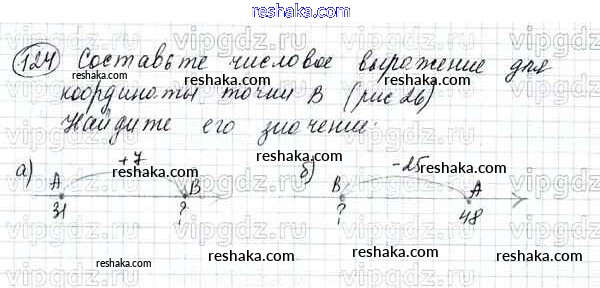 reshaka.com
124 Составьте числовое выражение для
reshaka.com reshaka.com reshaka.com
координаты точки В (рис 26)
Найдите его значение.
а) +7 б) -25
reshaka.com reshaka.com
А В В А
31 ? ? 48
reshaka.com reshaka.com reshaka.com
vipgdz.com